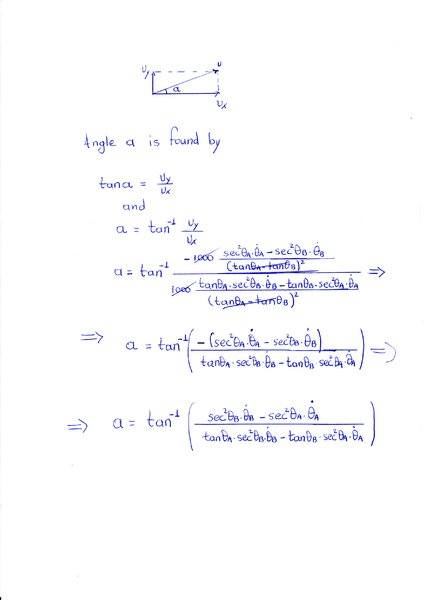 υy υ
a
υx
Angle a is found by
tana = υy/υx
and
a = tan⁻¹ υy/υx
a = tan⁻¹ (-1000 (sec²θA·θ̇A - sec²θB·θ̇B)/(tanθA - tanθB)²)/(1000 (tanθA·sec²θB·θ̇B - tanθB·sec²θA·θ̇A)/(tanθA - tanθB)²) =>
=> a = tan⁻¹(-(sec²θA·θ̇A - sec²θB·θ̇B)/(tanθA·sec²θB·θ̇B - tanθB·sec²θA·θ̇A)) =>
=> a = tan⁻¹((sec²θB·θ̇B - sec²θA·θ̇A)/(tanθA·sec²θB·θ̇B - tanθB·sec²θA·θ̇A))